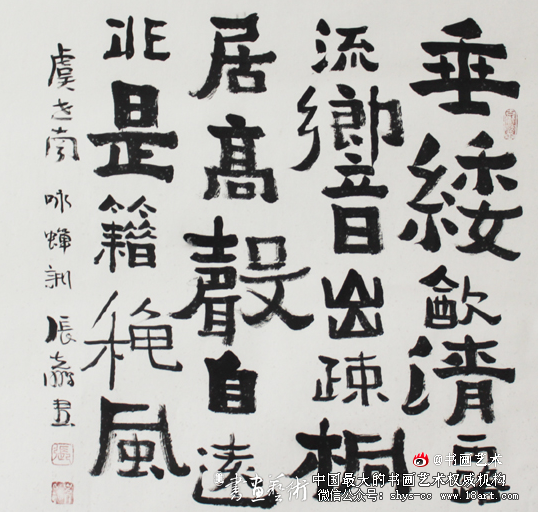 垂緌飲清
流響出疏桐
居高聲自遠
非是籍秋風
虞世南 咏蟬 張
@书画艺术
書畫藝術
中国最大的书画艺术权威机构
微信公众号: shys-cc www.18art.com